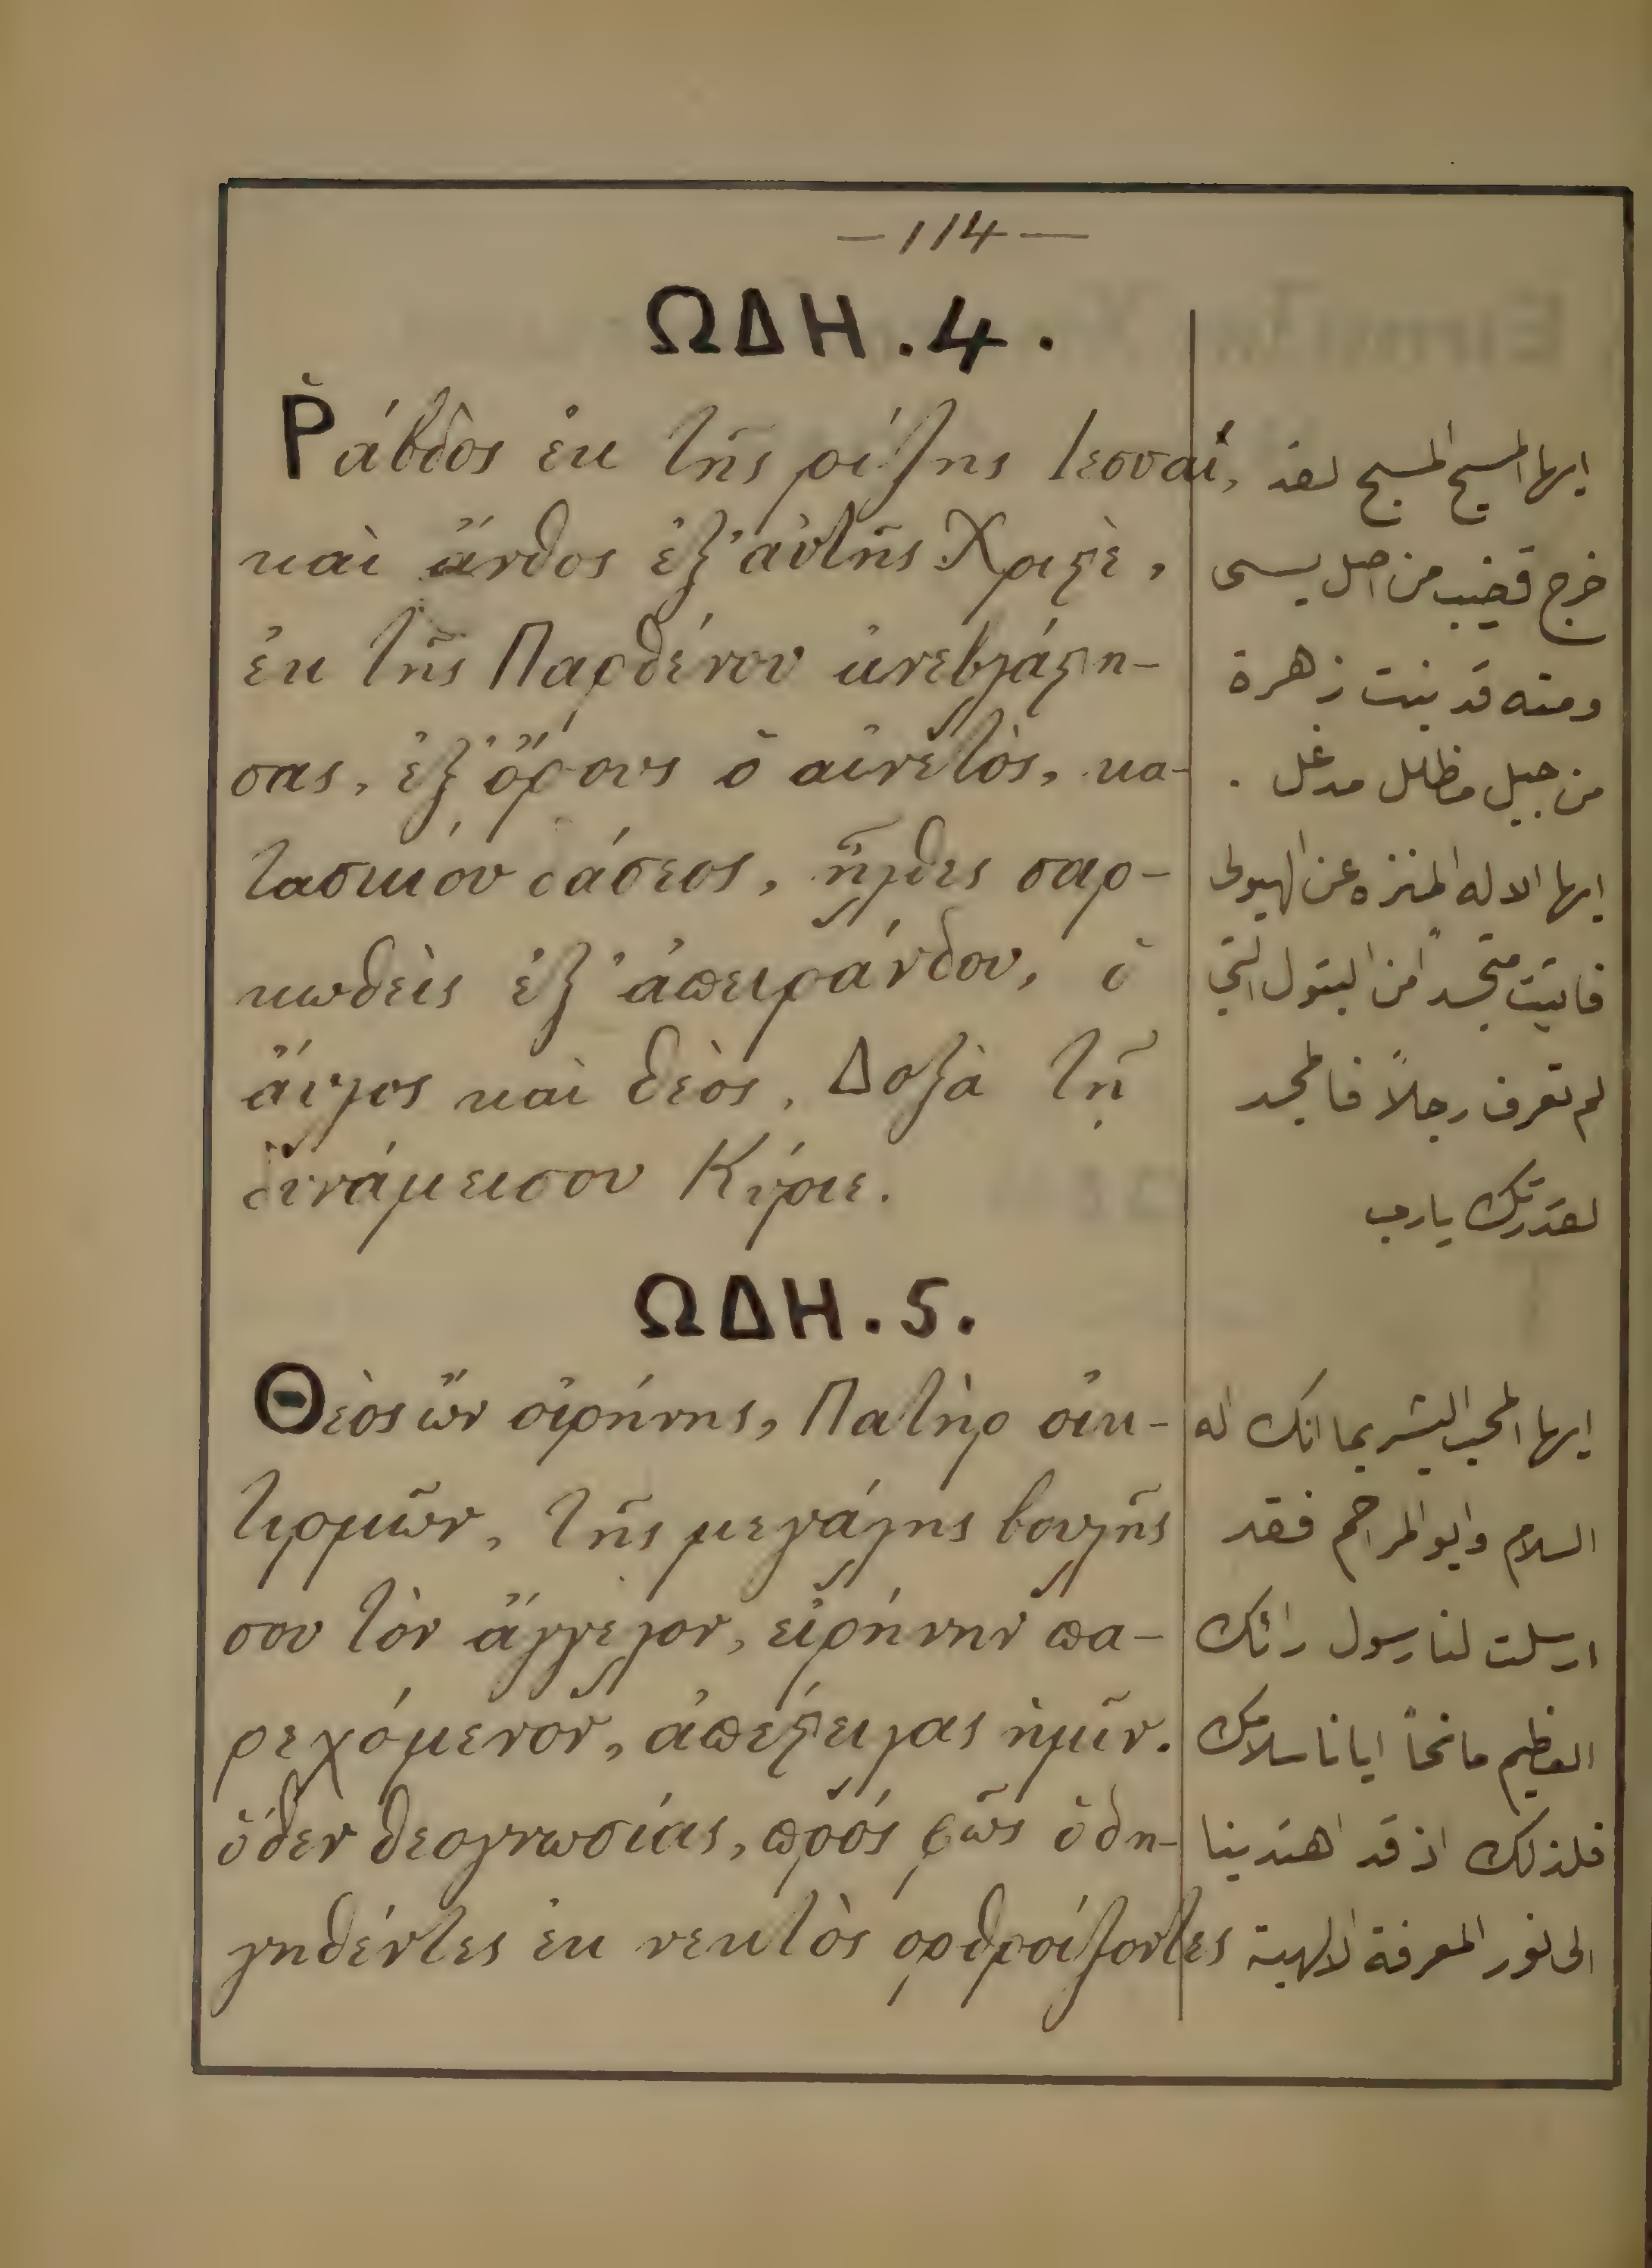 —114—
ΩΔΗ.4.
Ῥάβδος ἐκ τῆς ρίζης Ιεσσαί,
καὶ ἄνθος ἐξ' αὐτῆς Χριϛὲ,
ἐκ τῆς Παρθένου ἀνεβλάϛη-
σας, ἐξ' ὄρους ὁ αἰνετὸς, κα-
τασκίου δάσεος, ἦλθες σαρ-
κωθεὶς ἐξ' ἀπειράνδου, ὁ
ἄϋλος καὶ θεὸς. Δοξὰ τῇ
δυνάμεισου Κύριε.
ايها المسيح المسبح لقد
خرج قضيب من اصل يسى
ومنه قد نبت زهرة
من جبل مظلل مدغل .
ايها الاله المنزه عن الهيولى
فاتيت متجسداً من البتول التي
لم تعرف رجلاً فالمجد
لقدرتك يارب
ΩΔΗ.5.
Θεὸς ὤν εἰρήνης, Πατὴρ οἰκ-
τιρμῶν, τῆς μεγάλης βουλῆς
σου τὸν ἄγγελον, εἰρήνην πα-
ρεχόμενον, ἀπέϛειλας ἡμῖν.
ὅθεν θεογνωσίας, πρός φῶς ὁδη-
γηθέντες ἐκ νυκτὸς ορθροίζοντες
ايها المحب البشر بما انك اله
السلام وابو المراحم فقد
ارسلت لنا رسول رائك
العظيم مانحاً ايانا سلامك
فلذلك اذ قد اهتدينا
الى نور المعرفة الالهية